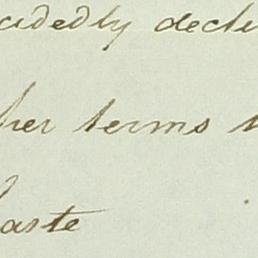 cidedly decli
her terms
haste